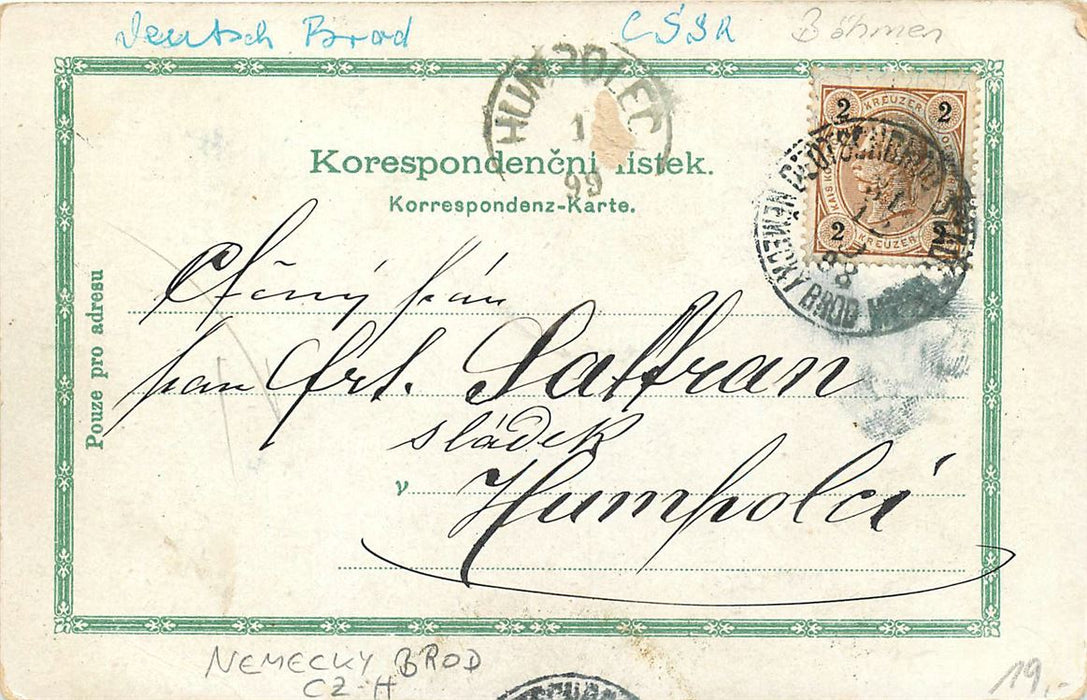 Deutsch Brod ČSSR Böhmen
HUMPOLEC
1
99
2 KREUZER 2
2 KREUZER 2
DEUTSCHBROD
NĚMECKÝ BROD
98
Korespondenční lístek.
Korrespondenz-Karte.
Pouze pro adresu
Ctěný pán
pan Frt. Saffran
sládek
v Humpolci
NEMECKY BROD
CZ-H
19.-